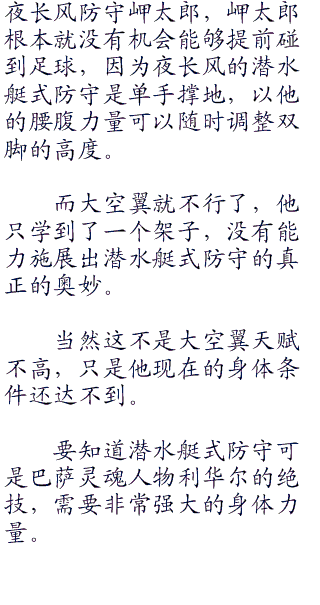 夜长风防守岬太郎，岬太郎
根本就没有机会能够提前碰
到足球，因为夜长风的潜水
艇式防守是单手撑地，以他
的腰腹力量可以随时调整双
脚的高度。
而大空翼就不行了，他
只学到了一个架子，没有能
力施展出潜水艇式防守的真
正的奥妙。
当然这不是大空翼天赋
不高，只是他现在的身体条
件还达不到。
要知道潜水艇式防守可
是巴萨灵魂人物利华尔的绝
技，需要非常强大的身体力
量。